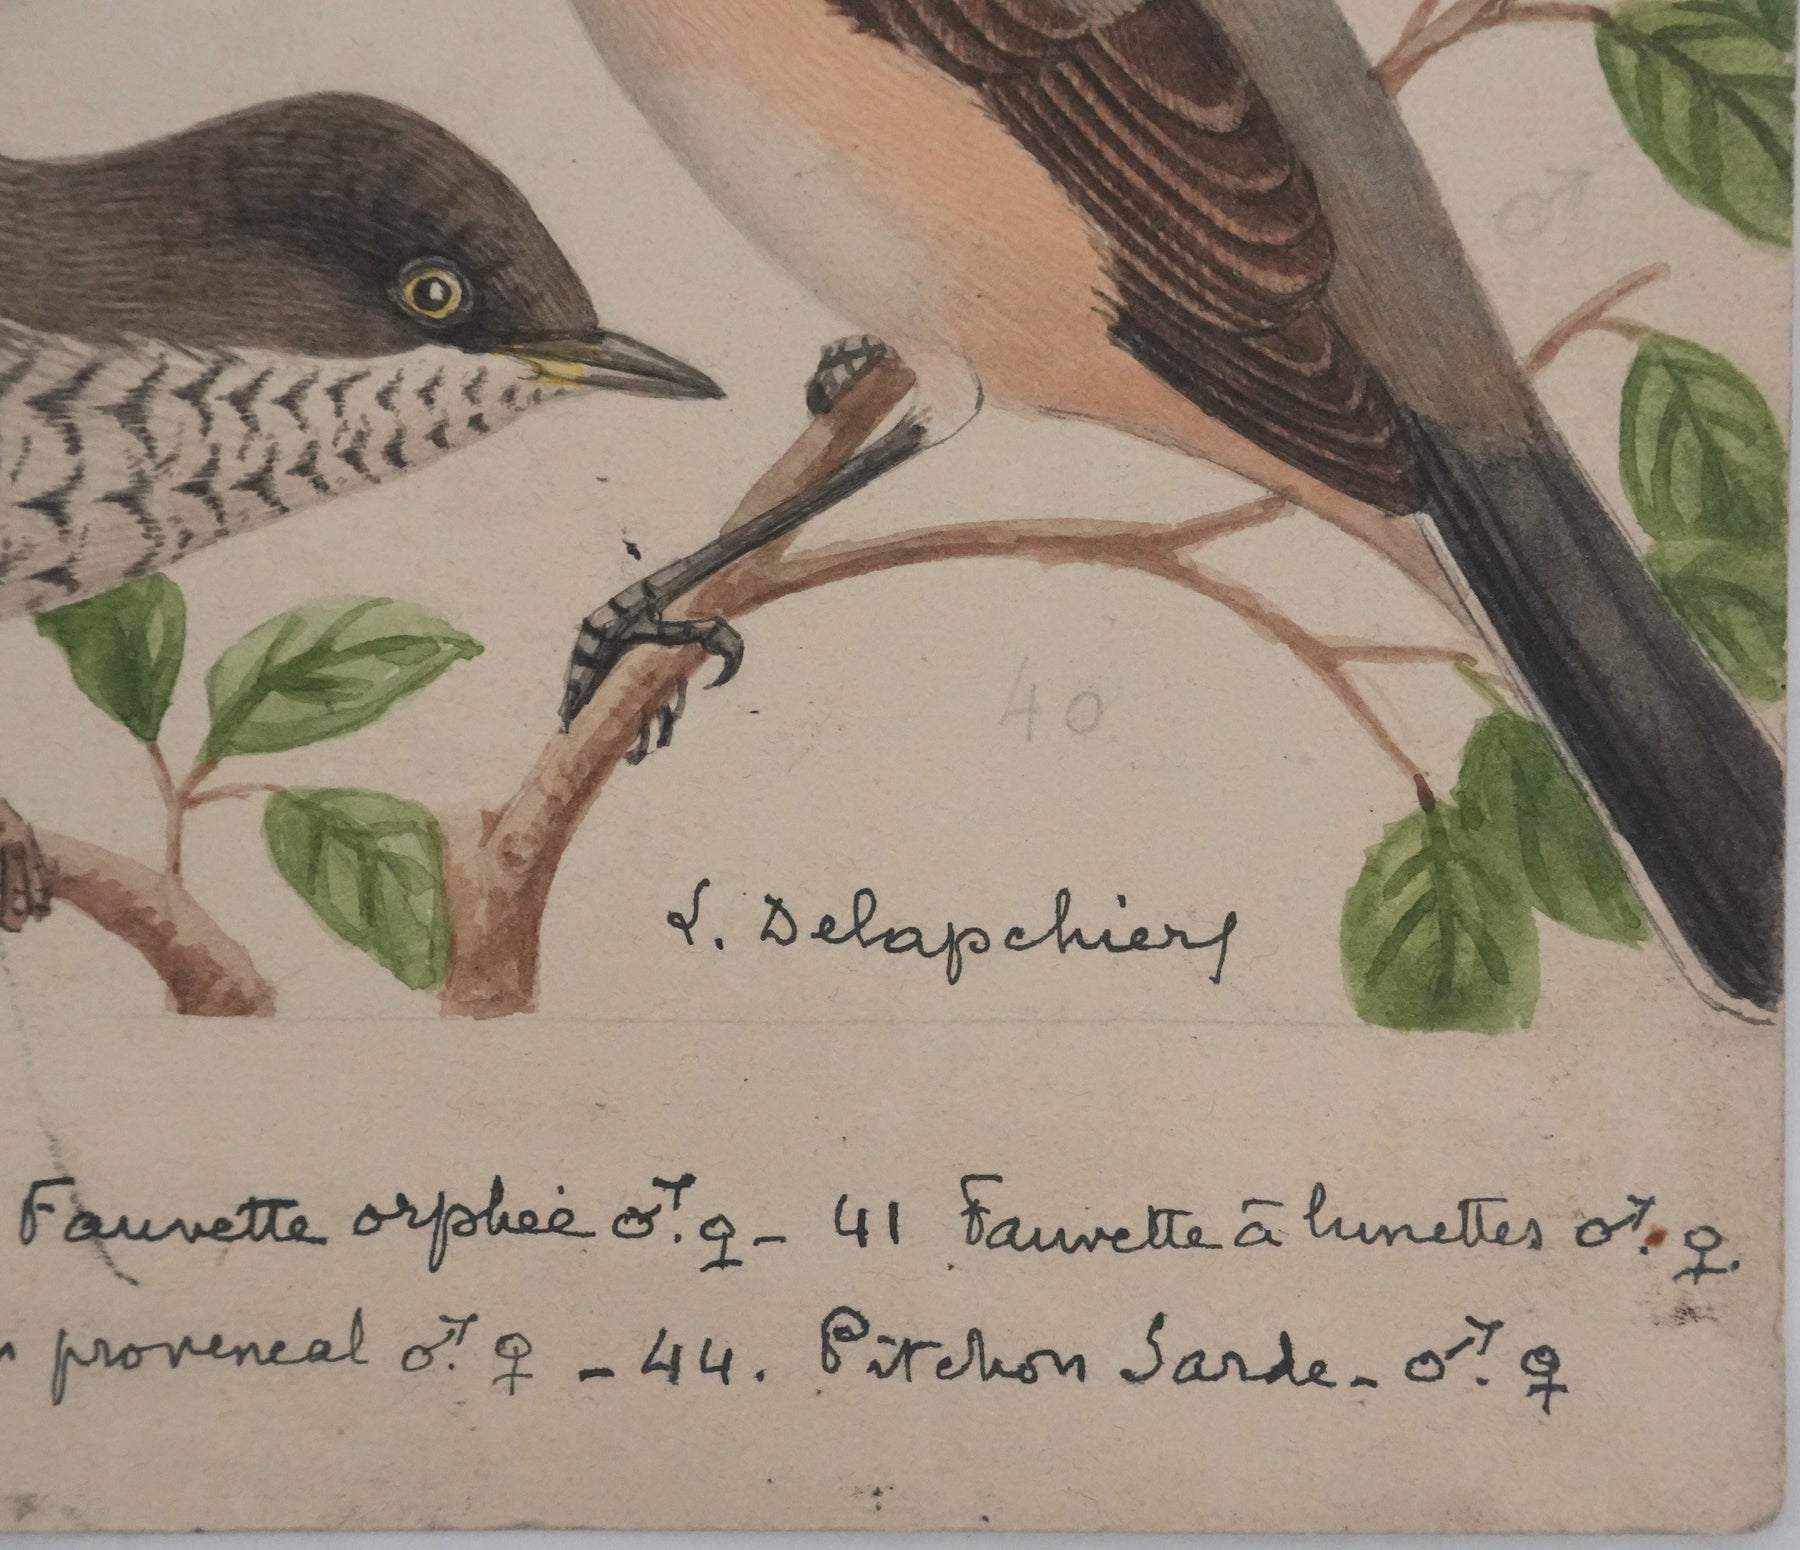 ♂
40
L. Delapchier
Fauvette orphée ♂. ♀ - 41 Fauvette à lunettes ♂. ♀.
provencal ♂. ♀ - 44. Pitchon Sarde - ♂. ♀